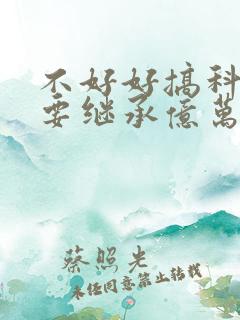 不好好搞科
要继承億萬
蔡照光
未经同意禁止转载